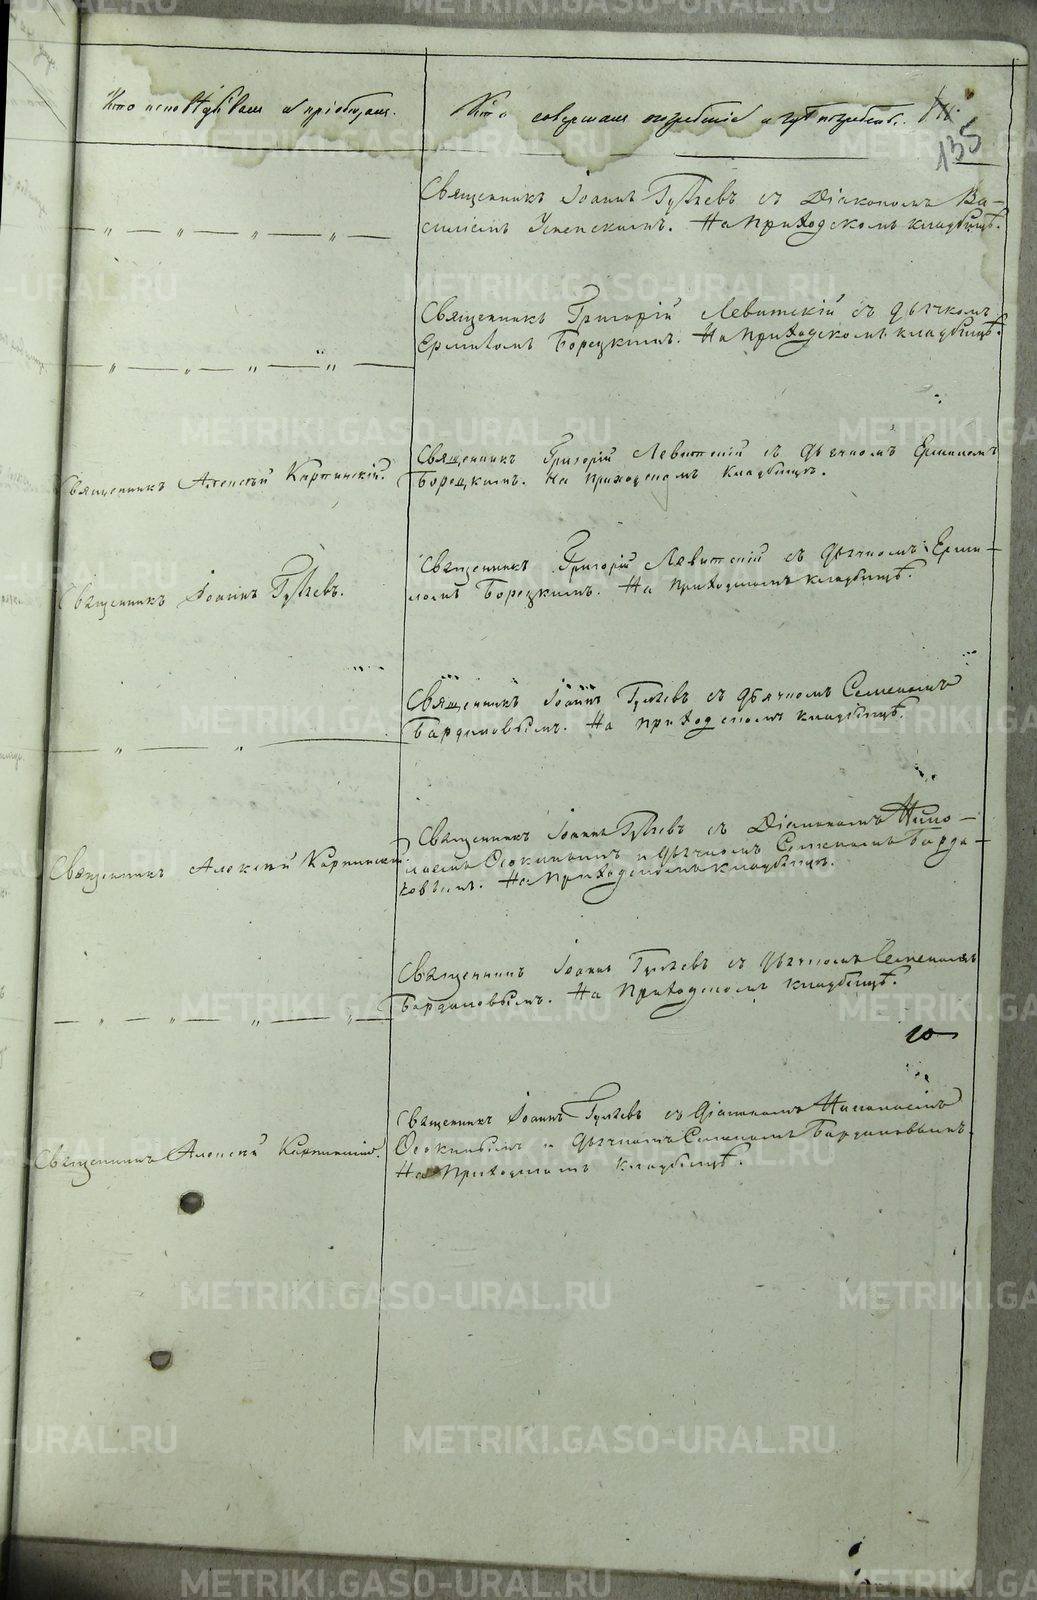 Кто исповѣдывалъ и пріобщалъ.
Кто совершалъ погребеніе и гдѣ погребены.
135
Священникъ Іоаннъ Гуляевъ съ Діакономъ Ва-
силіемъ Успенскимъ. На Приходскомъ кладбищѣ.
— „ — „ — „ — „ —
Священникъ Григорій Левитскій съ дьячкомъ
Ермиломъ Борецкимъ. На Приходскомъ кладбищѣ.
— „ — „ — „ — „ —
Священникъ Алексѣй Карпинскій.
Священникъ Григорій Левитскій съ дьячкомъ Ермиломъ
Борецкимъ. На Приходскомъ кладбищѣ.
Священникъ Іоаннъ Гуляевъ.
Священникъ Григорій Левитскій съ дьячкомъ Ерми-
ломъ Борецкимъ. На Приходскомъ кладбищѣ.
Священникъ Іоаннъ Гуляевъ съ дьячкомъ Семеномъ
Бардаковымъ. На Приходскомъ кладбищѣ.
„ „
Священникъ Алексѣй Карпинскій.
Священникъ Іоаннъ Гуляевъ съ Діакономъ
Осокинымъ и дьячкомъ Семеномъ Барда-
ковымъ. На Приходскомъ кладбищѣ.
Священникъ Іоаннъ Гуляевъ съ дьячкомъ Семеномъ
Бардаковымъ. На Приходскомъ кладбищѣ.
— „ — „ — „ — „ —
Священникъ Алексѣй Карпинскій.
Священникъ Іоаннъ Гуляевъ съ Діакономъ
Осокинымъ и дьячкомъ Семеномъ Бардаковымъ.
На Приходскомъ кладбищѣ.
METRIKI.GASO-URAL.RU